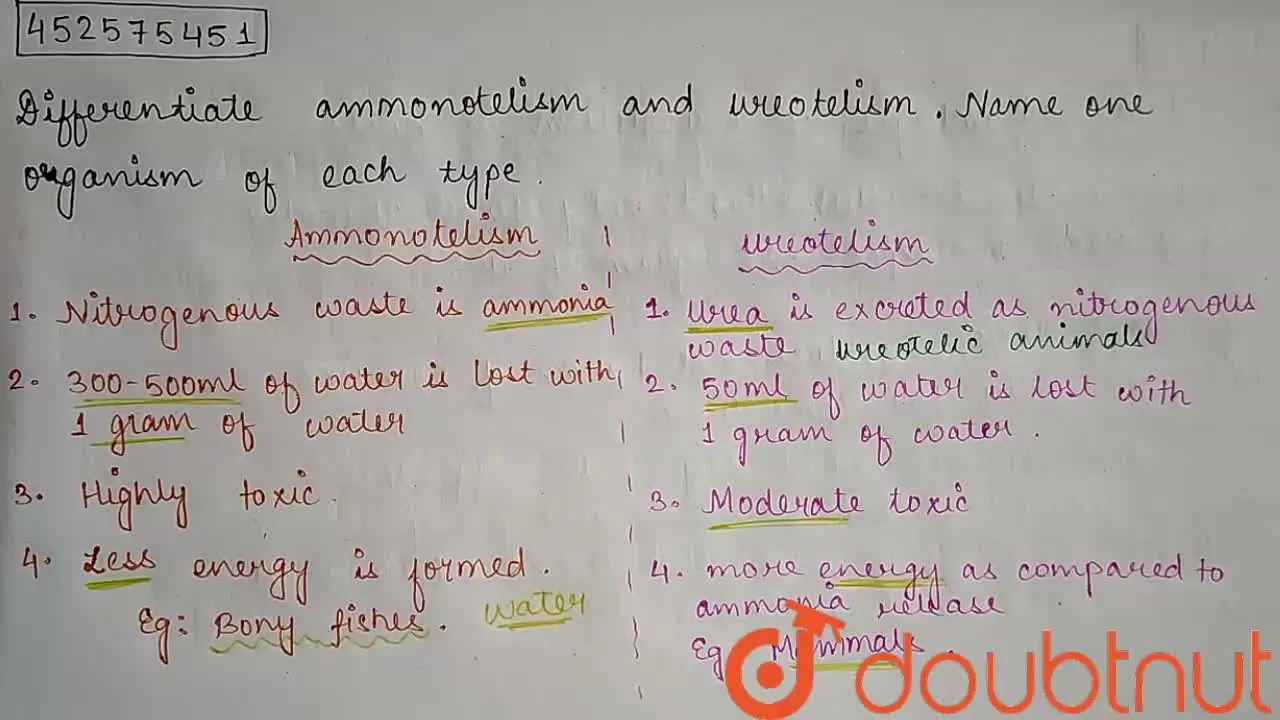 452575451
Differentiate ammonotelism and ureotelism. Name one
organism of each type.
Ammonotelism
1. Nitrogenous waste is ammonia
2. 300-500ml of water is lost with
1 gram of water
3. Highly toxic.
4. Less energy is formed.
Eg: Bony fishes. water
ureotelism
1. Urea is excreted as nitrogenous
waste ureotelic animals
2. 50ml of water is lost with
1 gram of water.
3. Moderate toxic
4. more energy as compared to
ammonia release
Eg Mammals.
doubtnut